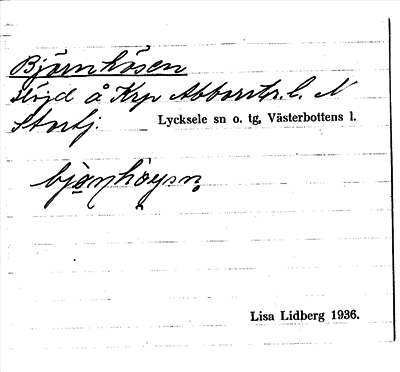 Björnhösen
Höjd å Krp Abborrtr.l. N
Stortj. Lycksele sn o. tg, Västerbottens l.
bjœ̣ṇhöysṇ
Lisa Lidberg 1936.